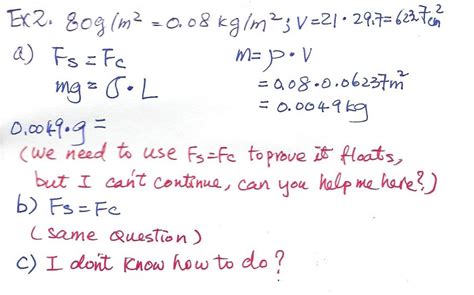 Ex2. 80g/m² = 0.08 kg/m²; V=21·29.7=623.7cm²
a) Fs = Fc
m= ρ·V
mg = σ·L
= 0.08·0.06237m²
= 0.0049kg
0.0049·g =
(we need to use Fs=Fc to prove it floats,
but I can't continue, can you help me here?)
b) Fs=Fc
(same question)
c) I don't know how to do?